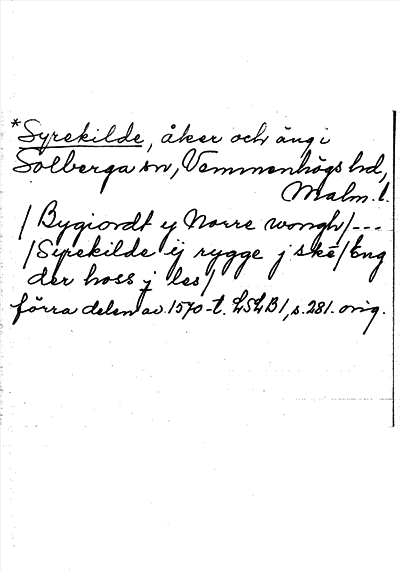 *Syrekilde, åker och äng i
Solberga sn, Vemmenhögs hd,
Malm. l.
/ Bygiordt y Norre wongh / ---
/ Syrekilde ij rygge j skē / Eng
der hoss j les /
förra delen av 1570-t. LSLB 1, s. 281. orig.